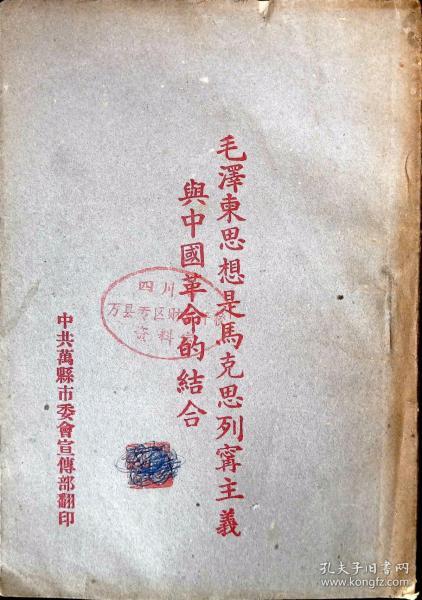 毛澤東思想是馬克思列寧主義
與中國革命的結合
四川
万县专区财
资料
中共萬縣市委會宣傳部翻印
孔夫子旧书网
www.kongfz.com